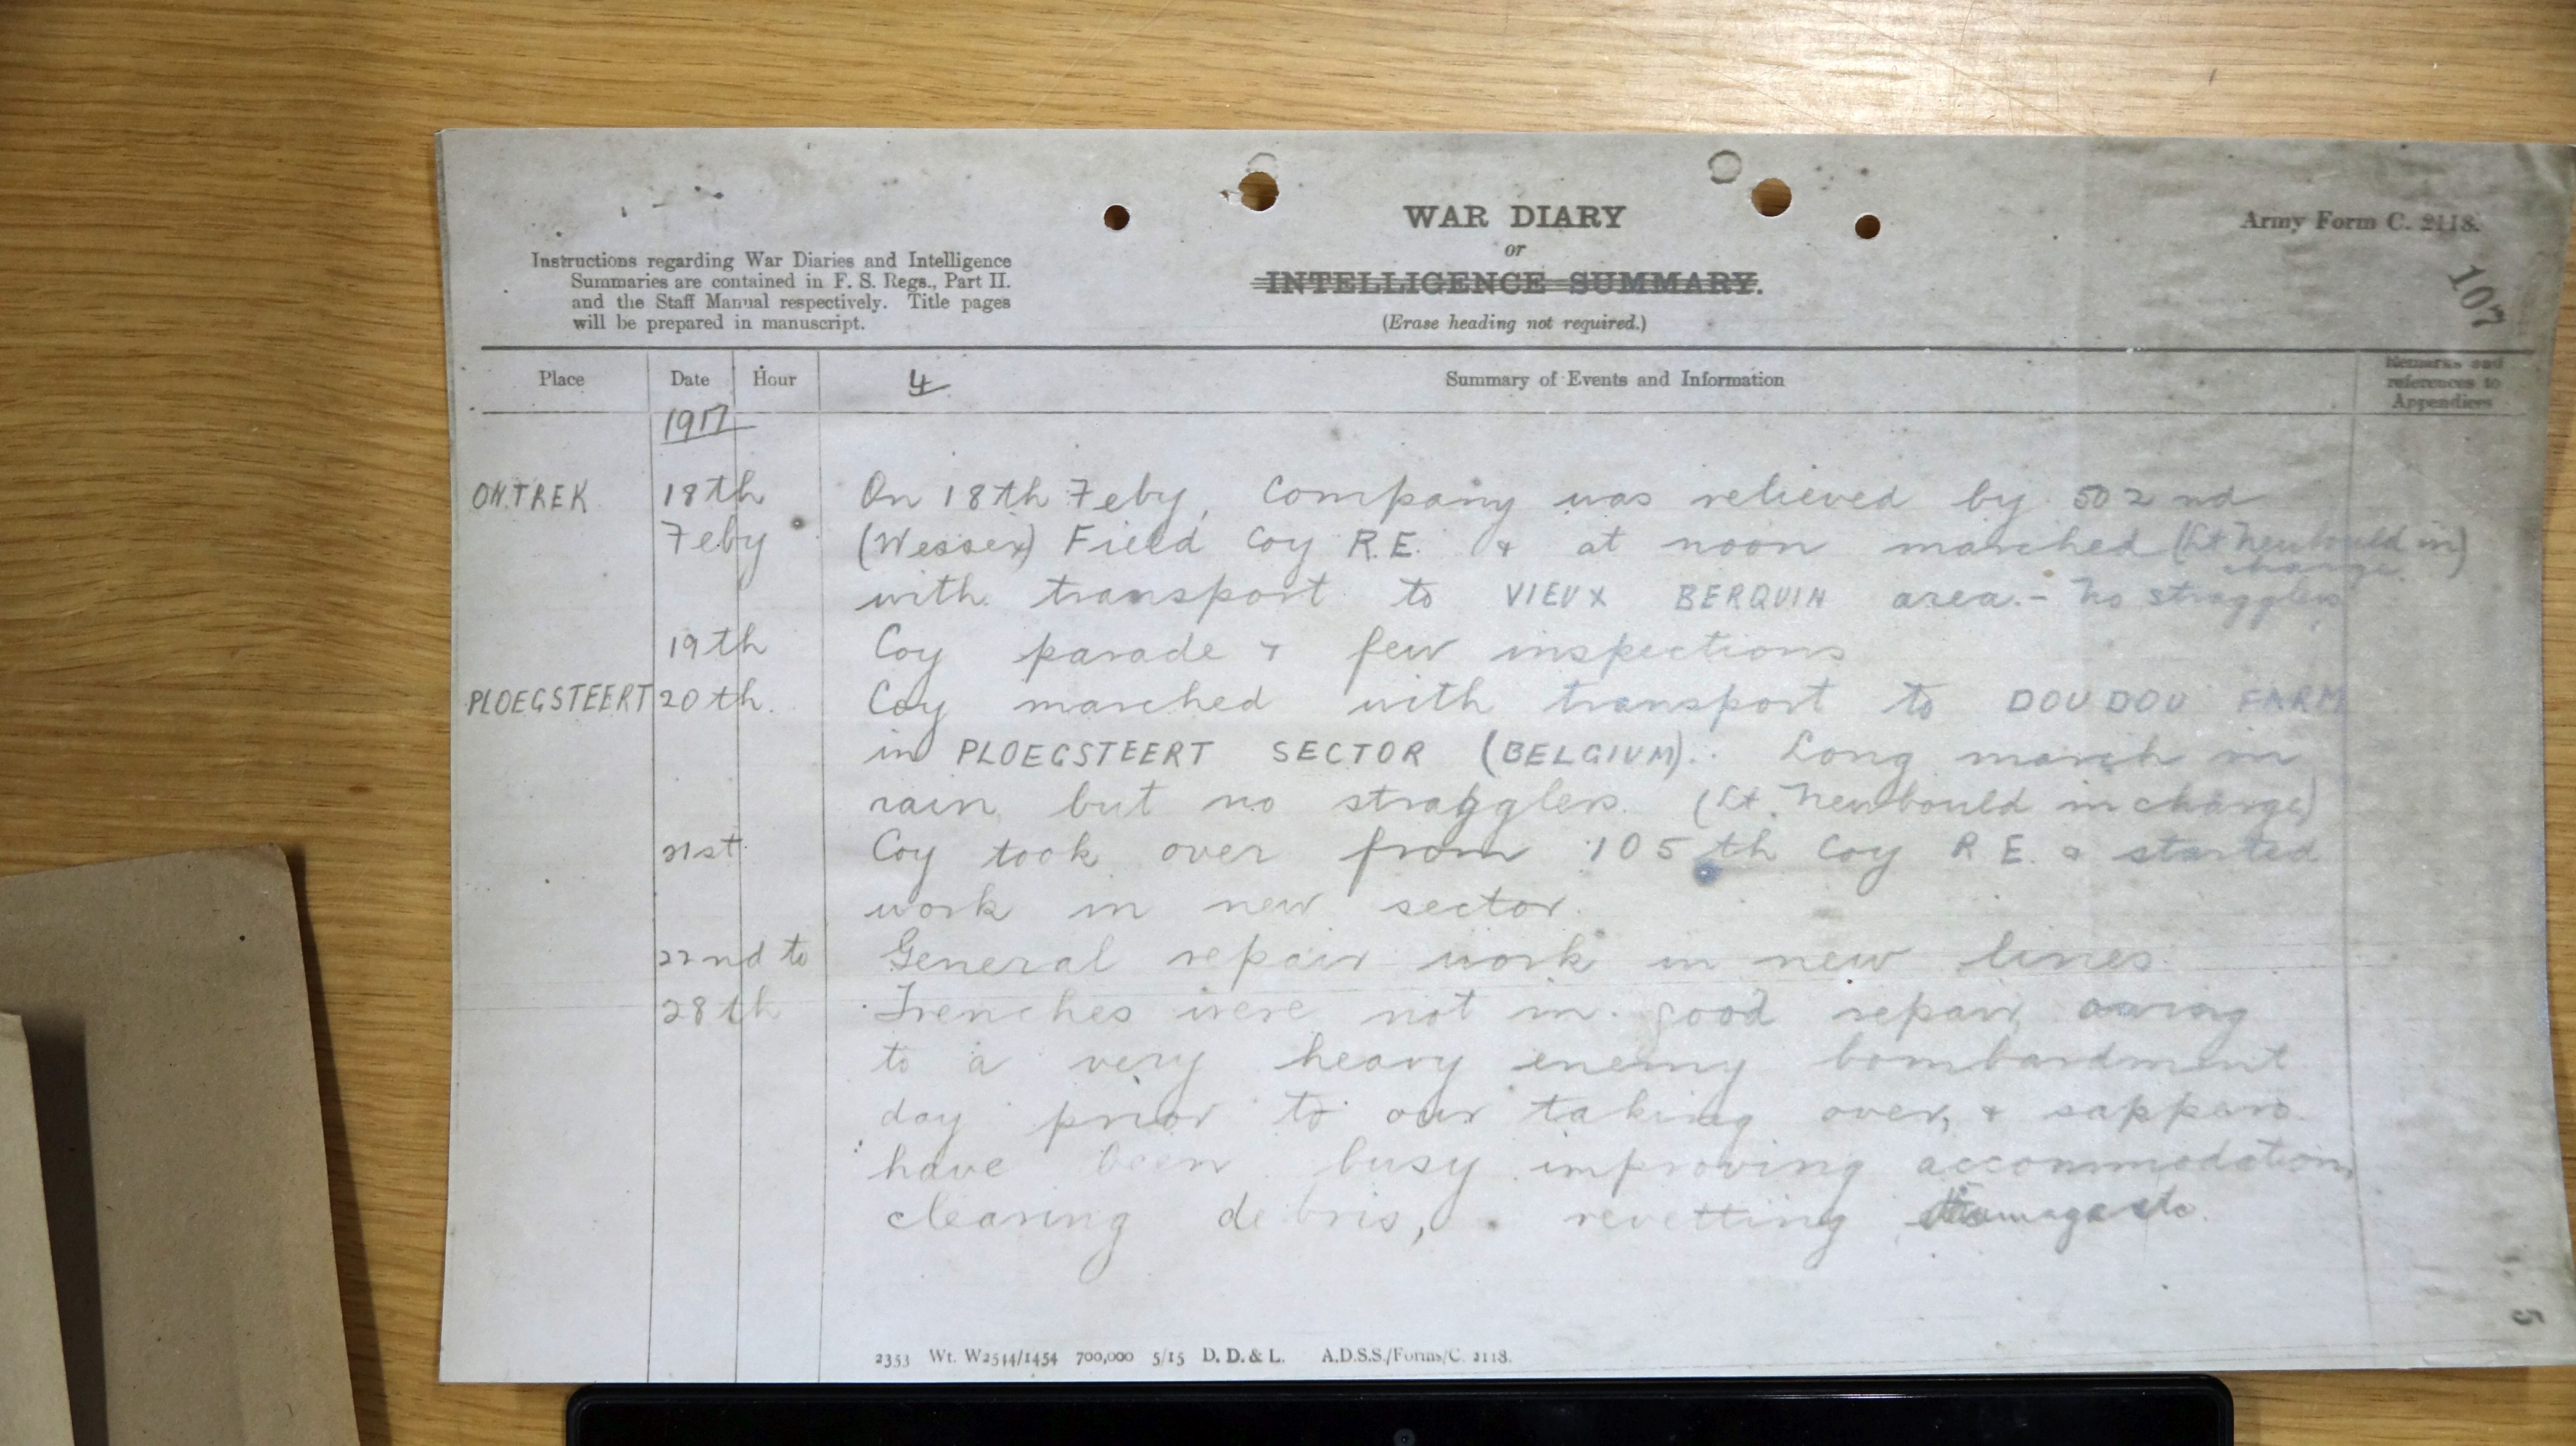 WAR DIARY
or
INTELLIGENCE SUMMARY.
(Erase heading not required.)
Army Form C. 2118.
107
Instructions regarding War Diaries and Intelligence
Summaries are contained in F. S. Regs., Part II.
and the Staff Manual respectively. Title pages
will be prepared in manuscript.
Place Date Hour 4 Summary of Events and Information Remarks and references to Appendices
1917
ON TREK 18th On 18th Feby, Company was relieved by 502nd
Feby (Wessex) Field Coy R.E. & at noon marched (Lt Newbould in charge)
with transport to VIEUX BERQUIN area. - No stragglers
19th Coy parade & few inspections
PLOEGSTEERT 20th. Coy marched with transport to DOUDOU FARM
in PLOEGSTEERT SECTOR (BELGIUM). Long march in
rain, but no stragglers. (Lt. Newbould in charge)
21st Coy took over from 105th Coy R E. & started
work in new sector.
22nd to General repair work in new lines.
28th Trenches were not in good repair, owing
to a very heavy enemy bombardment
day prior to our taking over, & sappers
have been busy improving accommodation,
clearing debris, revetting etc.
2353 Wt. W2544/1454 700,000 5/15 D. D. & L. A.D.S.S./Forms/C. 2118.